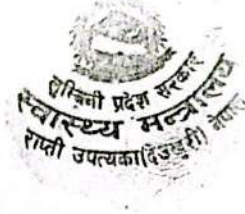 लुम्बिनी प्रदेश सरकार
स्वास्थ्य मन्त्रालय
राप्ती उपत्यका(देउखुरी) नेपाल